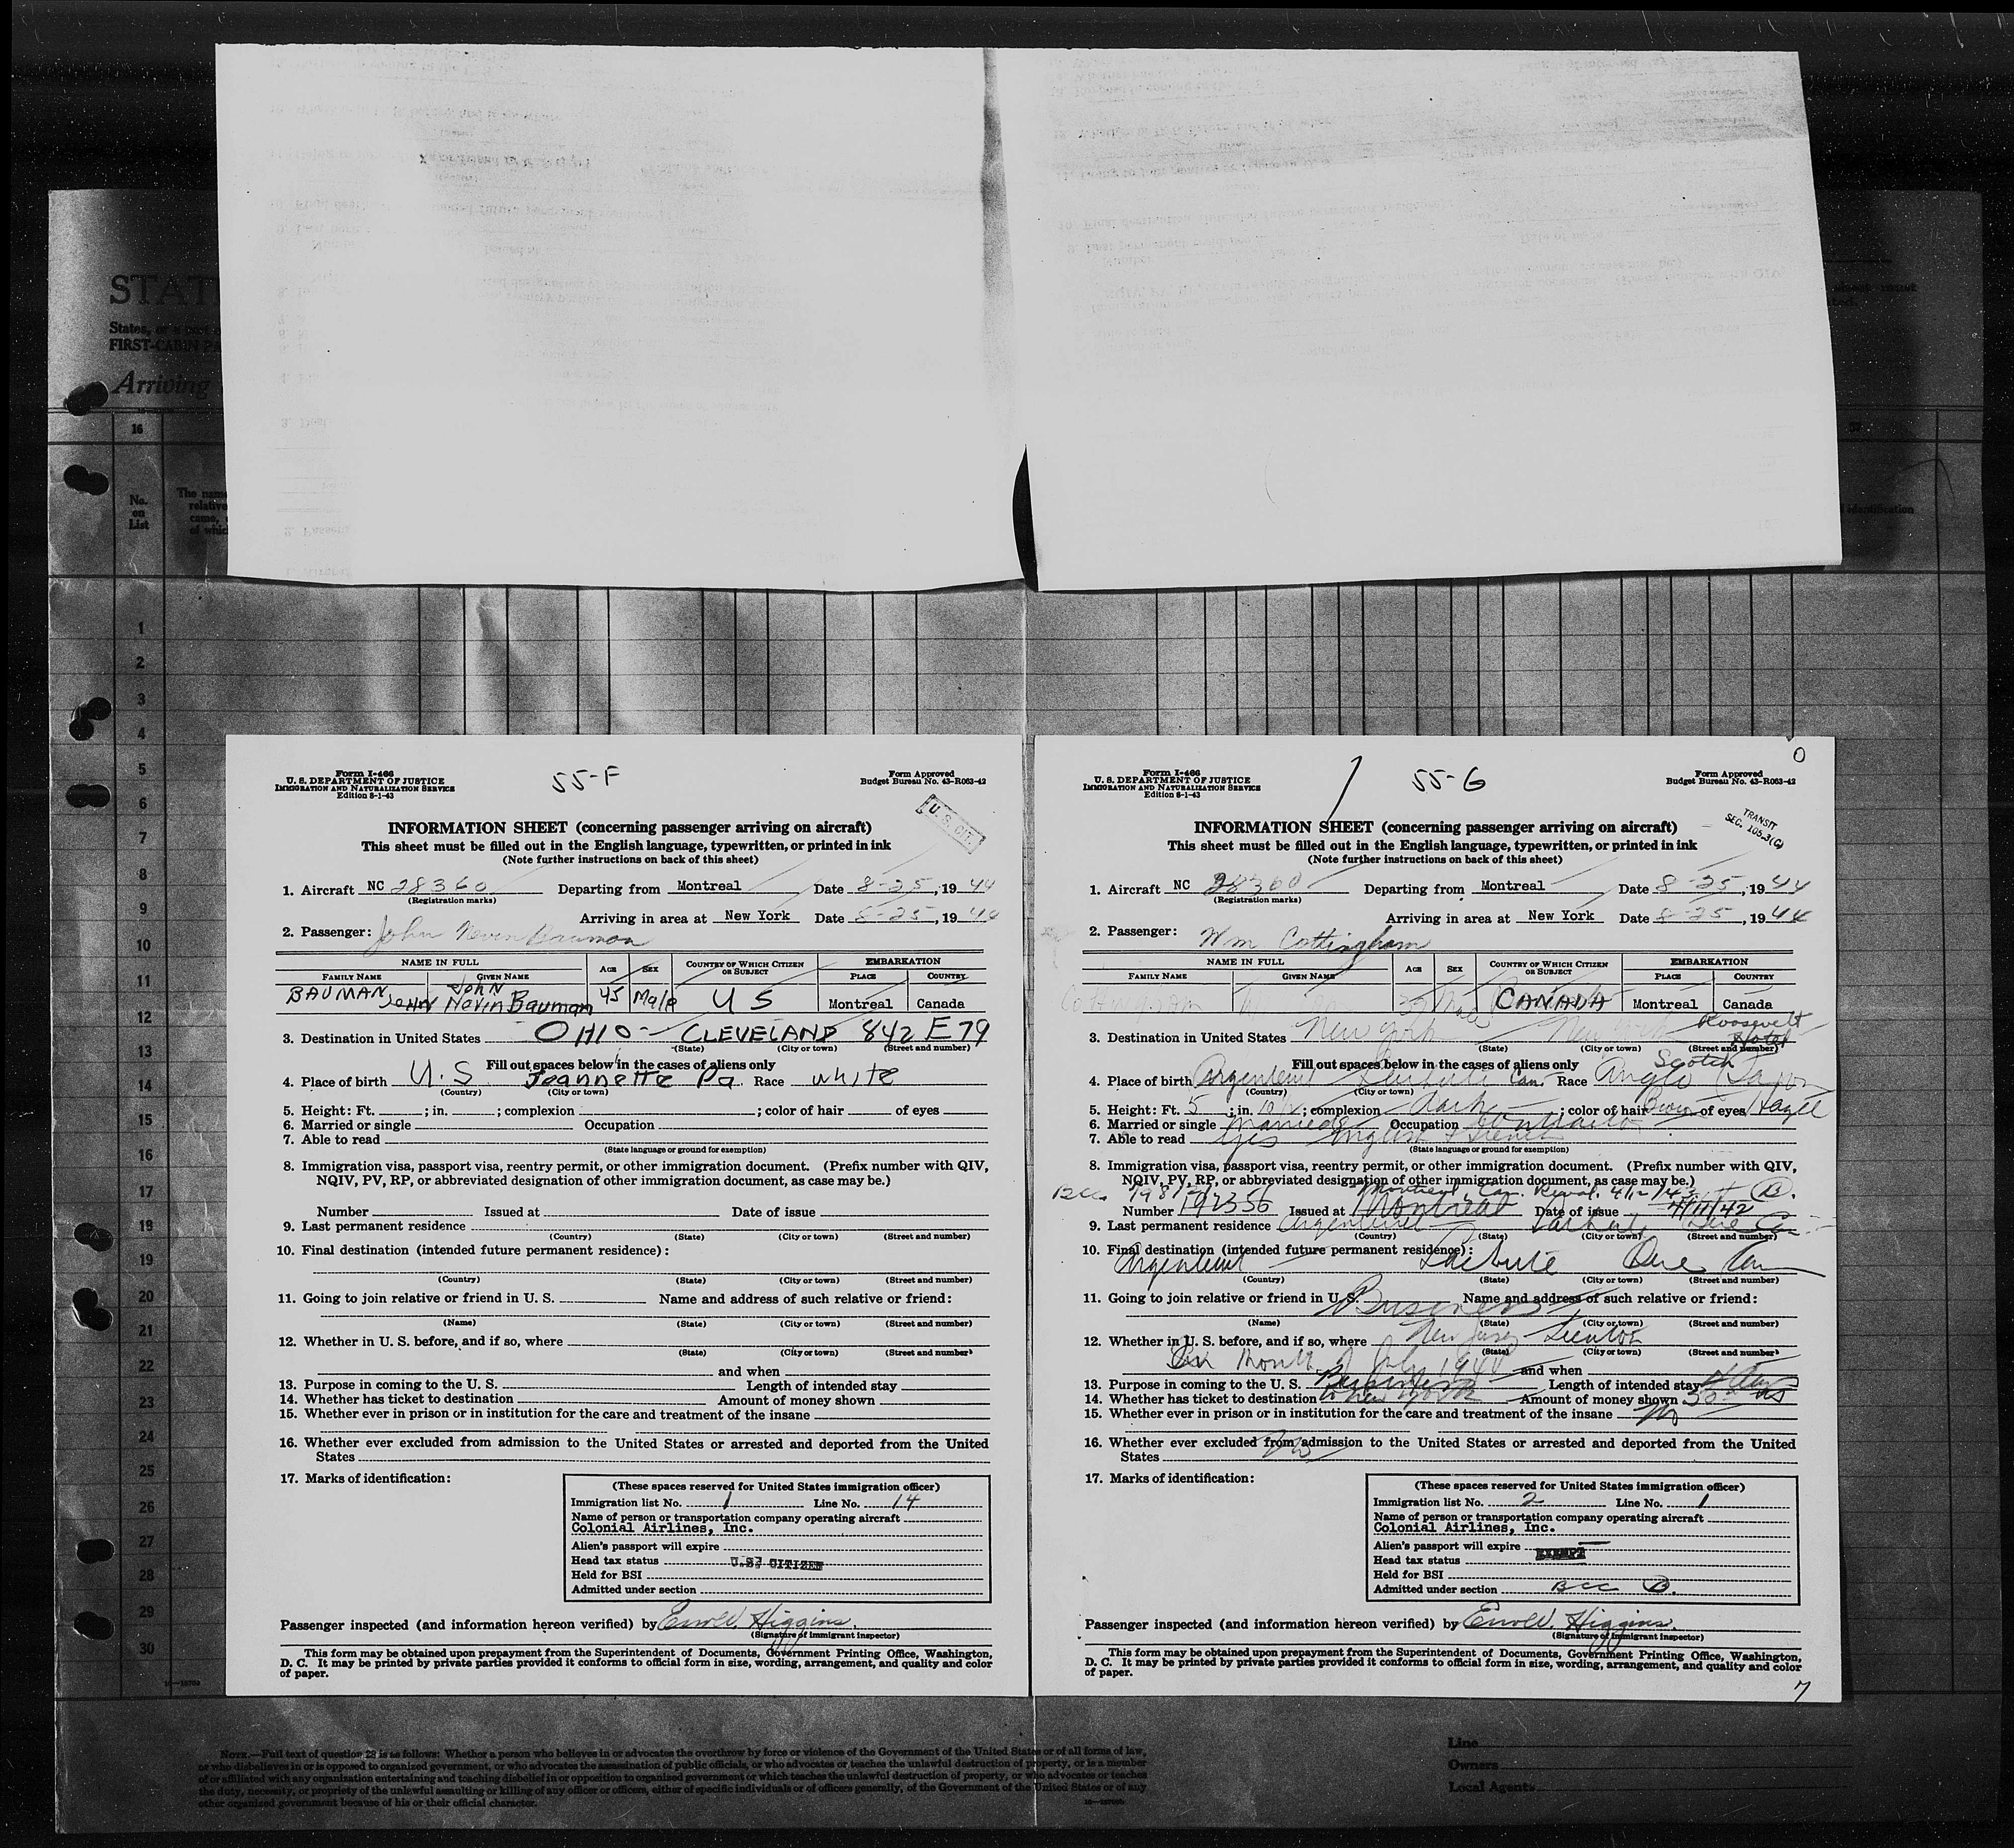 STAT
States, or a port
FIRST-CABIN PA
Arriving
16
No.
on
List
The name
relative
came,
of which
identification
1
2
3
4
5
6
7
8
9
10
11
12
13
14
15
16
17
19
19
20
21
22
23
24
25
26
27
28
29
30
Form I-466
U. S. DEPARTMENT OF JUSTICE
IMMIGRATION AND NATURALIZATION SERVICE
Edition 8-1-43
55-F
Form Approved
Budget Bureau No. 43-R063-42
U. S. CIT.
INFORMATION SHEET (concerning passenger arriving on aircraft)
This sheet must be filled out in the English language, typewritten, or printed in ink
(Note further instructions on back of this sheet)
1. Aircraft NC 28360 Departing from Montreal Date 8-25, 1944
(Registration marks)
Arriving in area at New York Date 8-25, 1944
2. Passenger: John Nevin Bauman
NAME IN FULL AGE SEX COUNTRY OF WHICH CITIZEN OR SUBJECT EMBARKATION
FAMILY NAME GIVEN NAME PLACE COUNTRY
BAUMAN John
JOHN Nevin Bauman 45 Male U S Montreal Canada
3. Destination in United States OHIO - CLEVELAND 842 E 79
(State) (City or town) (Street and number)
Fill out spaces below in the cases of aliens only
4. Place of birth U.S Jeannette Pa. Race white
(Country) (City or town)
5. Height: Ft. ; in. ; complexion ; color of hair of eyes
6. Married or single Occupation
7. Able to read
(State language or ground for exemption)
8. Immigration visa, passport visa, reentry permit, or other immigration document. (Prefix number with QIV,
NQIV, PV, RP, or abbreviated designation of other immigration document, as case may be.)
Number Issued at Date of issue
9. Last permanent residence
(Country) (State) (City or town) (Street and number)
10. Final destination (intended future permanent residence):
(Country) (State) (City or town) (Street and number)
11. Going to join relative or friend in U. S. Name and address of such relative or friend:
(Name) (State) (City or town) (Street and number)
12. Whether in U. S. before, and if so, where
(State) (City or town) (Street and number)
and when
13. Purpose in coming to the U. S. Length of intended stay
14. Whether has ticket to destination Amount of money shown
15. Whether ever in prison or in institution for the care and treatment of the insane
16. Whether ever excluded from admission to the United States or arrested and deported from the United
States
17. Marks of identification:
(These spaces reserved for United States immigration officer)
Immigration list No. 1 Line No. 14
Name of person or transportation company operating aircraft
Colonial Airlines, Inc.
Alien's passport will expire
Head tax status U.S. CITIZEN
Held for BSI
Admitted under section
Passenger inspected (and information hereon verified) by Errol W. Higgins.
(Signature of immigrant inspector)
This form may be obtained upon prepayment from the Superintendent of Documents, Government Printing Office, Washington,
D. C. It may be printed by private parties provided it conforms to official form in size, wording, arrangement, and quality and color
of paper.
0
Form I-466
U. S. DEPARTMENT OF JUSTICE
IMMIGRATION AND NATURALIZATION SERVICE
Edition 8-1-43
55-G
Form Approved
Budget Bureau No. 43-R063-42
TRANSIT
SEC. 105.3(G)
INFORMATION SHEET (concerning passenger arriving on aircraft)
This sheet must be filled out in the English language, typewritten, or printed in ink
(Note further instructions on back of this sheet)
1. Aircraft NC 28360 Departing from Montreal Date 8-25, 1944
(Registration marks)
Arriving in area at New York Date 8-25, 1944
2. Passenger: Wm Cottingham
NAME IN FULL AGE SEX COUNTRY OF WHICH CITIZEN OR SUBJECT EMBARKATION
FAMILY NAME GIVEN NAME PLACE COUNTRY
Male CANADA Montreal Canada
3. Destination in United States New York New York Roosevelt Hotel
(State) (City or town) (Street and number)
Fill out spaces below in the cases of aliens only
Scotch
4. Place of birth Argenteuil Lachute Can. Race Anglo Saxon
(Country) (City or town)
5. Height: Ft. 5 ; in. 10 1/2 ; complexion dark ; color of hair Brown of eyes Hazel
6. Married or single Married Occupation Contractor
7. Able to read Yes English & French
(State language or ground for exemption)
8. Immigration visa, passport visa, reentry permit, or other immigration document. (Prefix number with QIV,
NQIV, PV, RP, or abbreviated designation of other immigration document, as case may be.)
BCC Montreal, Can. Reval. B.
Number 192356 Issued at Montreal Date of issue 4/11/42
9. Last permanent residence Argenteuil Lachute Que Can
(Country) (State) (City or town) (Street and number)
10. Final destination (intended future permanent residence):
Argenteuil Lachute Que Can
(Country) (State) (City or town) (Street and number)
11. Going to join relative or friend in U. S. Business Name and address of such relative or friend:
(Name) (State) (City or town) (Street and number)
12. Whether in U. S. before, and if so, where New Jersey Trenton
(State) (City or town) (Street and number)
Month of July 1944 and when
13. Purpose in coming to the U. S. Business Length of intended stay
14. Whether has ticket to destination to New York Amount of money shown
15. Whether ever in prison or in institution for the care and treatment of the insane No
16. Whether ever excluded from admission to the United States or arrested and deported from the United
States No
17. Marks of identification:
(These spaces reserved for United States immigration officer)
Immigration list No. 2 Line No. 1
Name of person or transportation company operating aircraft
Colonial Airlines, Inc.
Alien's passport will expire
Head tax status EXEMPT
Held for BSI
Admitted under section BCC B.
Passenger inspected (and information hereon verified) by Errol W. Higgins.
(Signature of immigrant inspector)
This form may be obtained upon prepayment from the Superintendent of Documents, Government Printing Office, Washington,
D. C. It may be printed by private parties provided it conforms to official form in size, wording, arrangement, and quality and color
of paper.
7
NOTE.—Full text of question 28 is as follows: Whether a person who believes in or advocates the overthrow by force or violence of the Government of the United States or of all forms of law,
or who disbelieves in or is opposed to organized government, or who advocates the assassination of public officials, or who advocates or teaches the unlawful destruction of property, or is a member
of or affiliated with any organization entertaining and teaching disbelief in or opposition to organized government or which teaches the unlawful destruction of property, or who advocates or teaches
the duty, necessity, or propriety of the unlawful assaulting or killing of any officer or officers, either of specific individuals or of officers generally, of the Government of the United States or of any
other organized government because of his or their official character.
Line
Owners
Local Agents